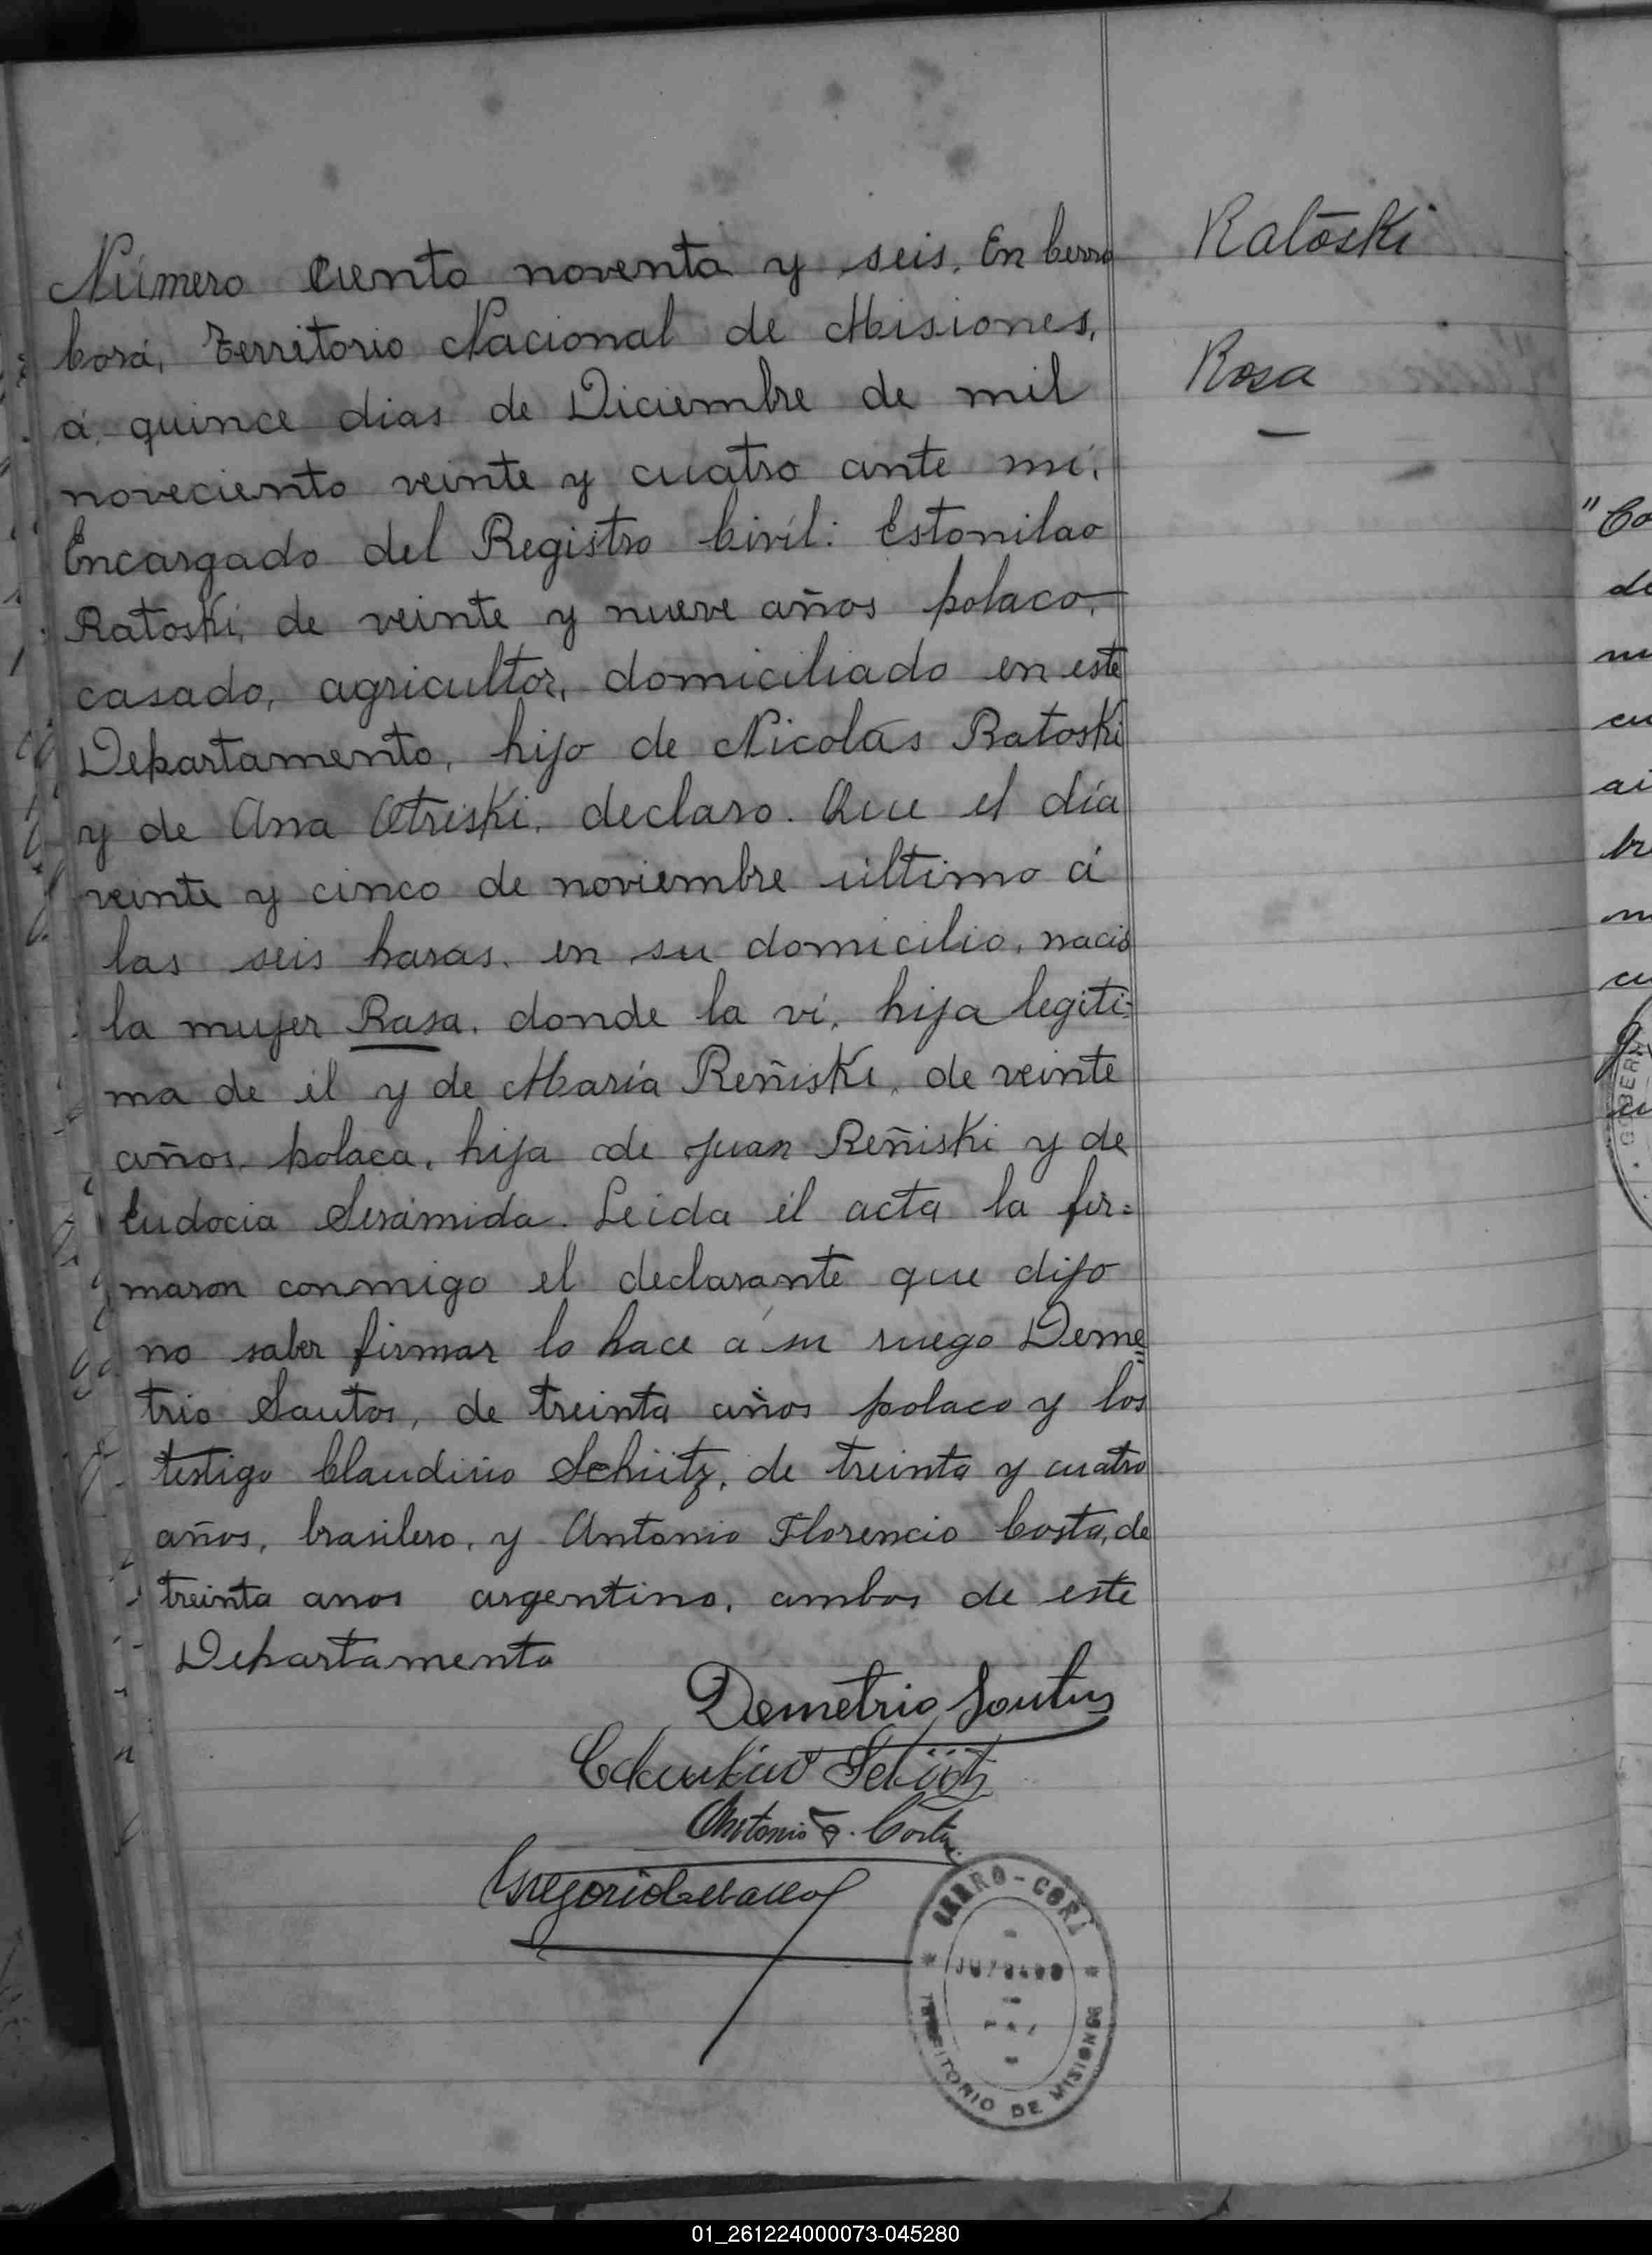 Número Ciento noventa y seis. En Cerro
Corá, Territorio Nacional de Misiones,
á quince dias de Diciembre de mil
noveciento veinte y cuatro ante mi,
Encargado del Registro Civíl: Estonilao
Ratoski, de veinte y nueve años polaco,
casado, agricultor, domiciliado en este
Departamento, hijo de Nicolás Ratoski
y de Ana Otriski, declaro. Que el día
veinte y cinco de noviembre último á
las seis horas, en su domicilio, nació
la mujer Rosa, donde la ví, hija legiti-
ma de él y de María Reñiski, de veinte
años, polaca, hija de Juan Reñiski y de
Eudocia Serámida. Leida el acta la fir=
maron conmigo el declarante que dijo
no saber firmar lo hace á su ruego Deme=
trio Sautos, de treinta años polaco y los
testigo Claudirio Schütz, de treinta y cuatro
años, brasilero, y Antonio Florencio Costa, de
treinta anos argentino, ambos de este
Departamento
Ratoski
Rosa
Demetrio
Antonio F. Costa
Gregorio
CERRO-CORÁ
JUZGADO
TERRITORIO DE MISIONES
"Co
de
cu
ai
br
01_261224000073-045280